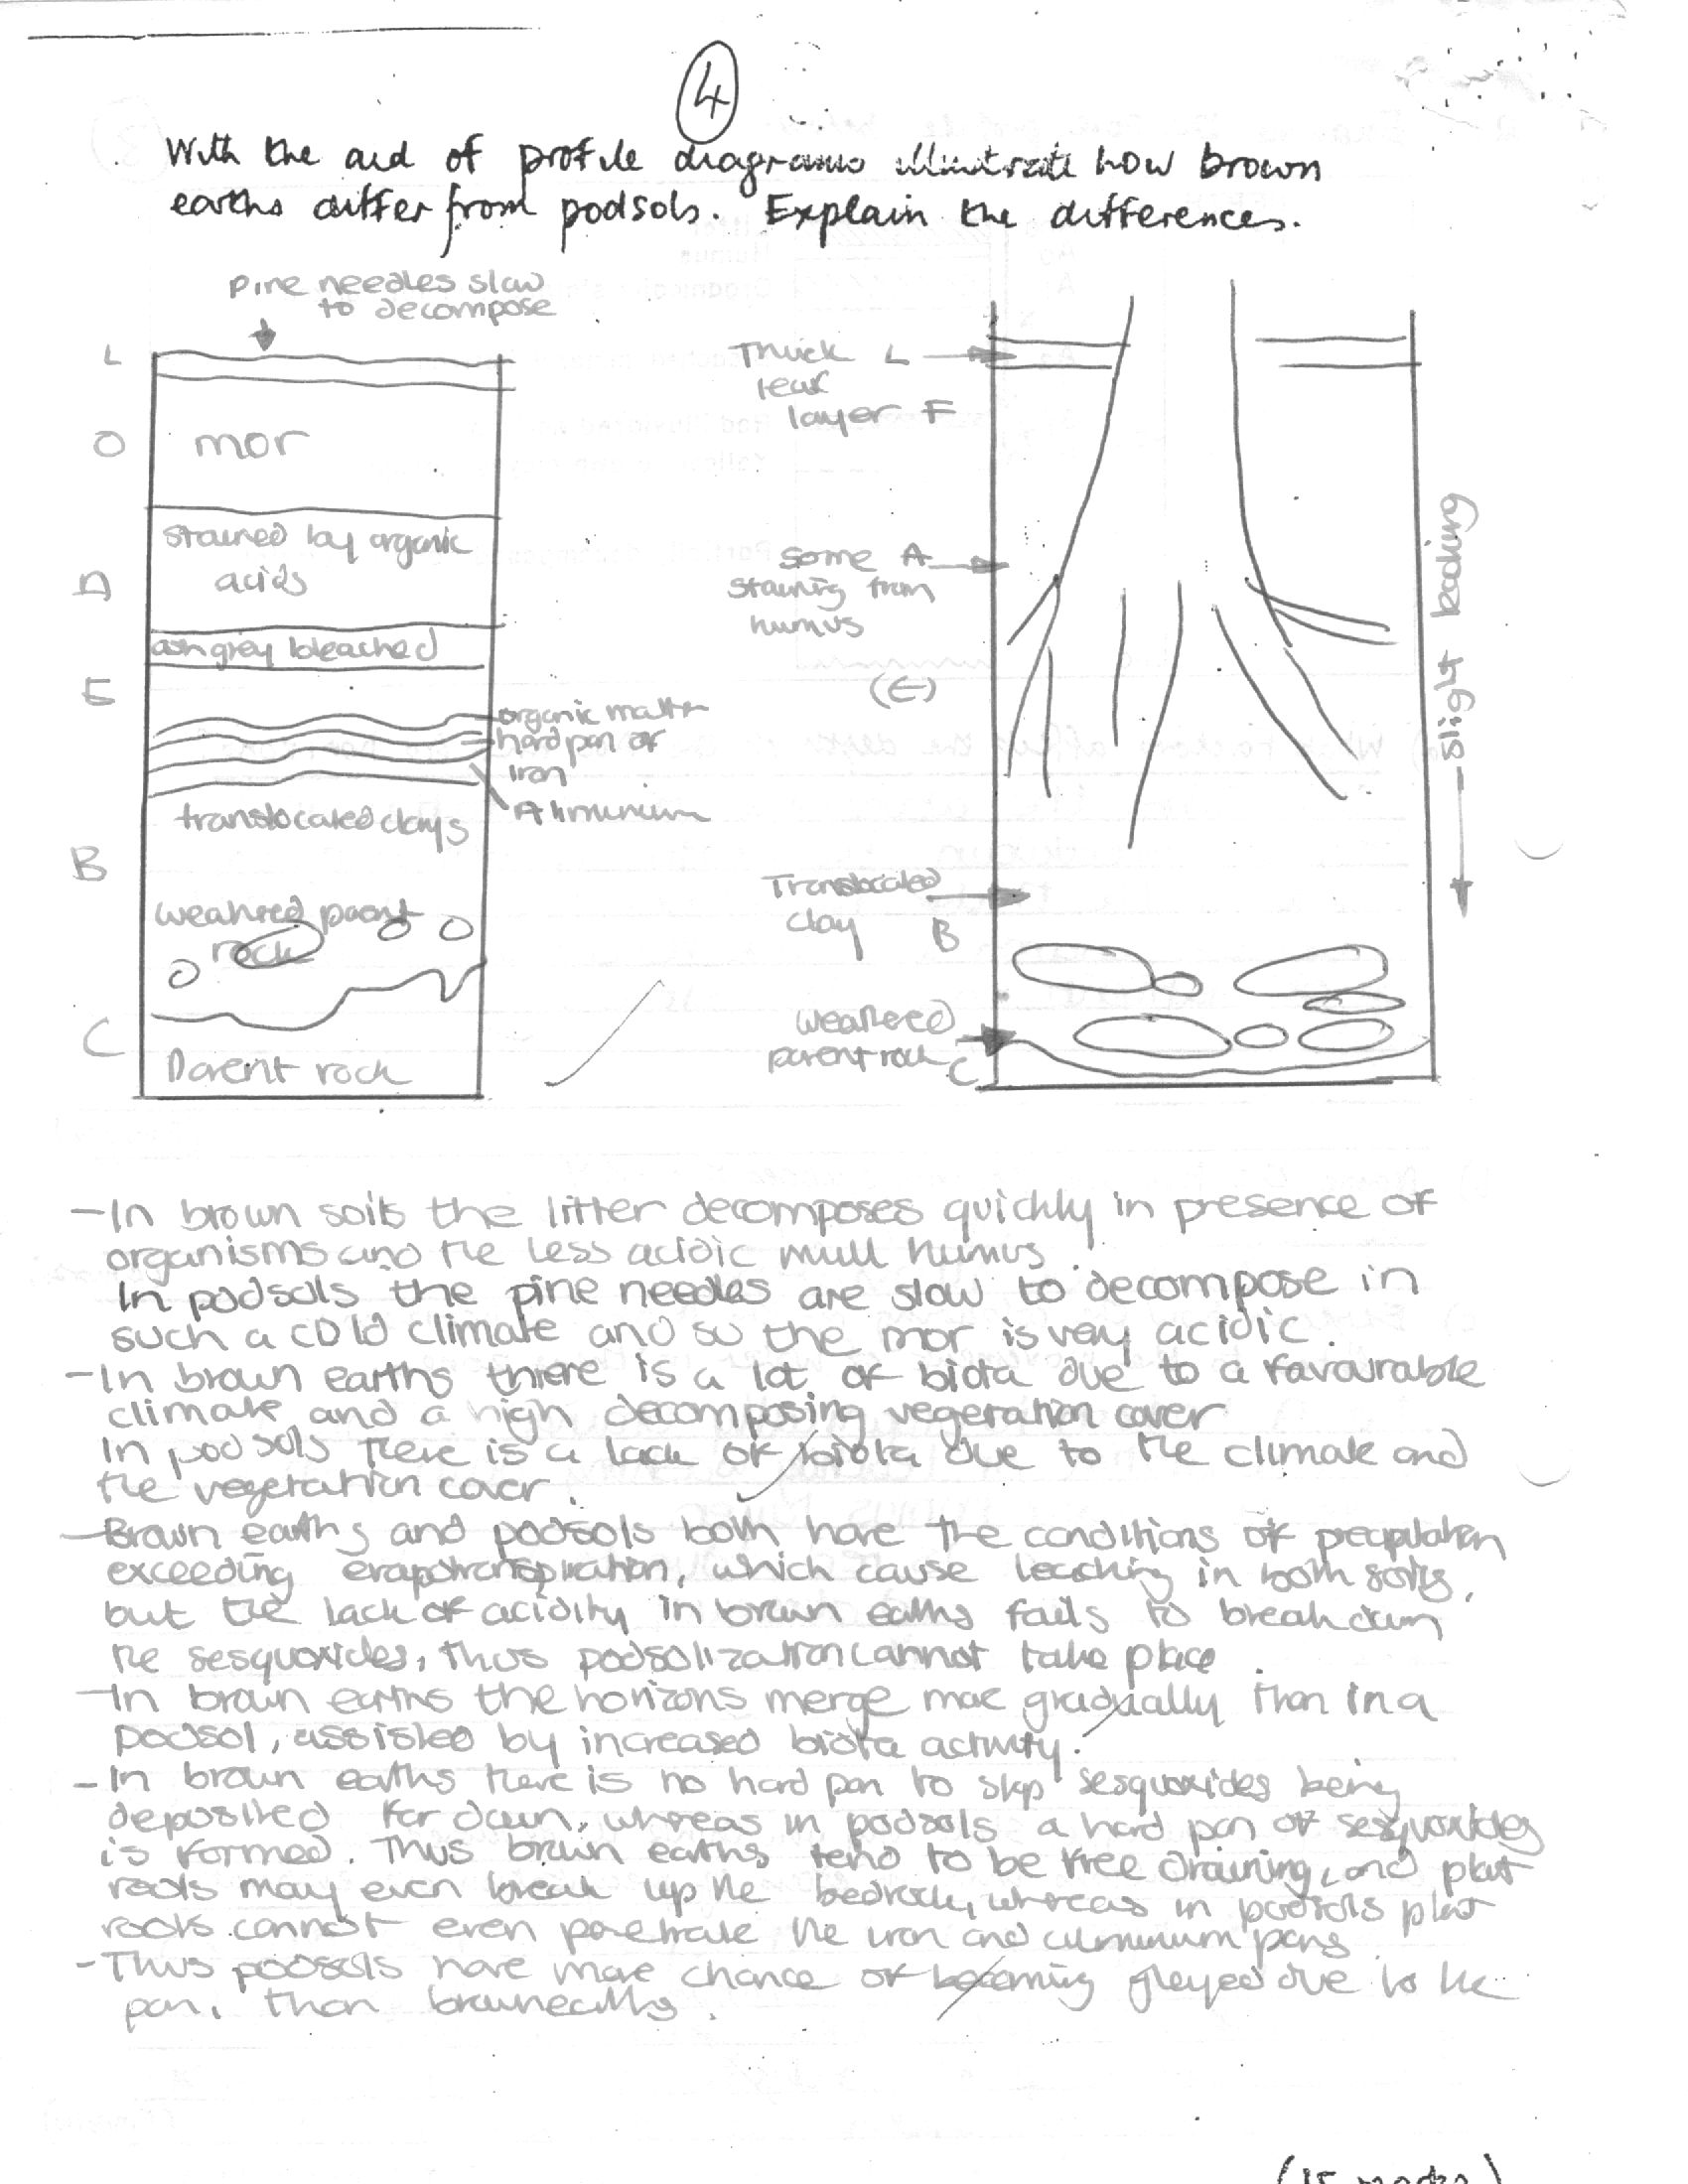 4
With the aid of profile diagrams illustrate how brown
earths differ from podsols. Explain the differences.
Pine needles slow
to decompose
L
O
mor
A
stained by organic
acids
ash grey bleached
E
organic matter
hard pan of
iron
Aluminium
translocated clays
B
weathered parent
rock
C
Parent rock
Thick L
leaf
layer F
Some A
staining from
humus
(E)
Translocated
clay B
weathered
parent rock C
slight leaching
- In brown soils the litter decomposes quickly in presence of
organisms and the less acidic mull humus.
In podsols the pine needles are slow to decompose in
such a cold climate and so the mor is very acidic.
- In brown earths there is a lot of biota due to a favourable
climate and a high decomposing vegetation cover
In podsols there is a lack of biota due to the climate and
the vegetation cover.
- Brown earths and podsols both have the conditions of precipitation
exceeding evapotranspiration, which cause leaching in both soils,
but the lack of acidity in brown earths fails to breakdown
the sesquoxides, thus podsolization cannot take place.
- In brown earths the horizons merge more gradually than in a
podsol, assisted by increased biota activity.
- In brown earths there is no hard pan to stop sesquoxides being
deposited far down, whereas in podsols a hard pan of sesquoxides
is formed. Thus brown earths tend to be free draining, and plant
roots may even break up the bedrock, whereas in podsols plant
roots cannot even penetrate the iron and aluminium pans.
- Thus podsols have more chance of becoming gleyed due to the
pan, than brown earths.
(15 marks)